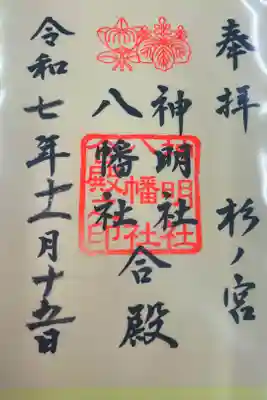 奉拝 杉ノ宮
神明社
八幡社
合殿
神明社八幡社合殿之印
令和七年十一月十五日